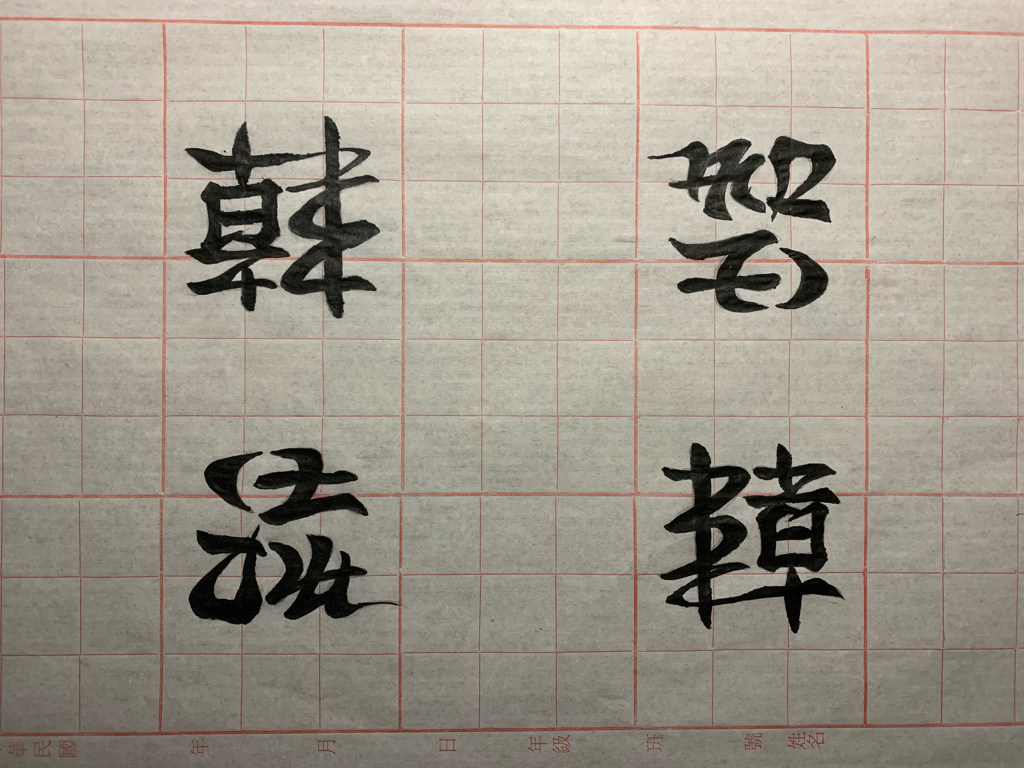 智障
韓
華民國 年 月 日 年級 班 號 姓名